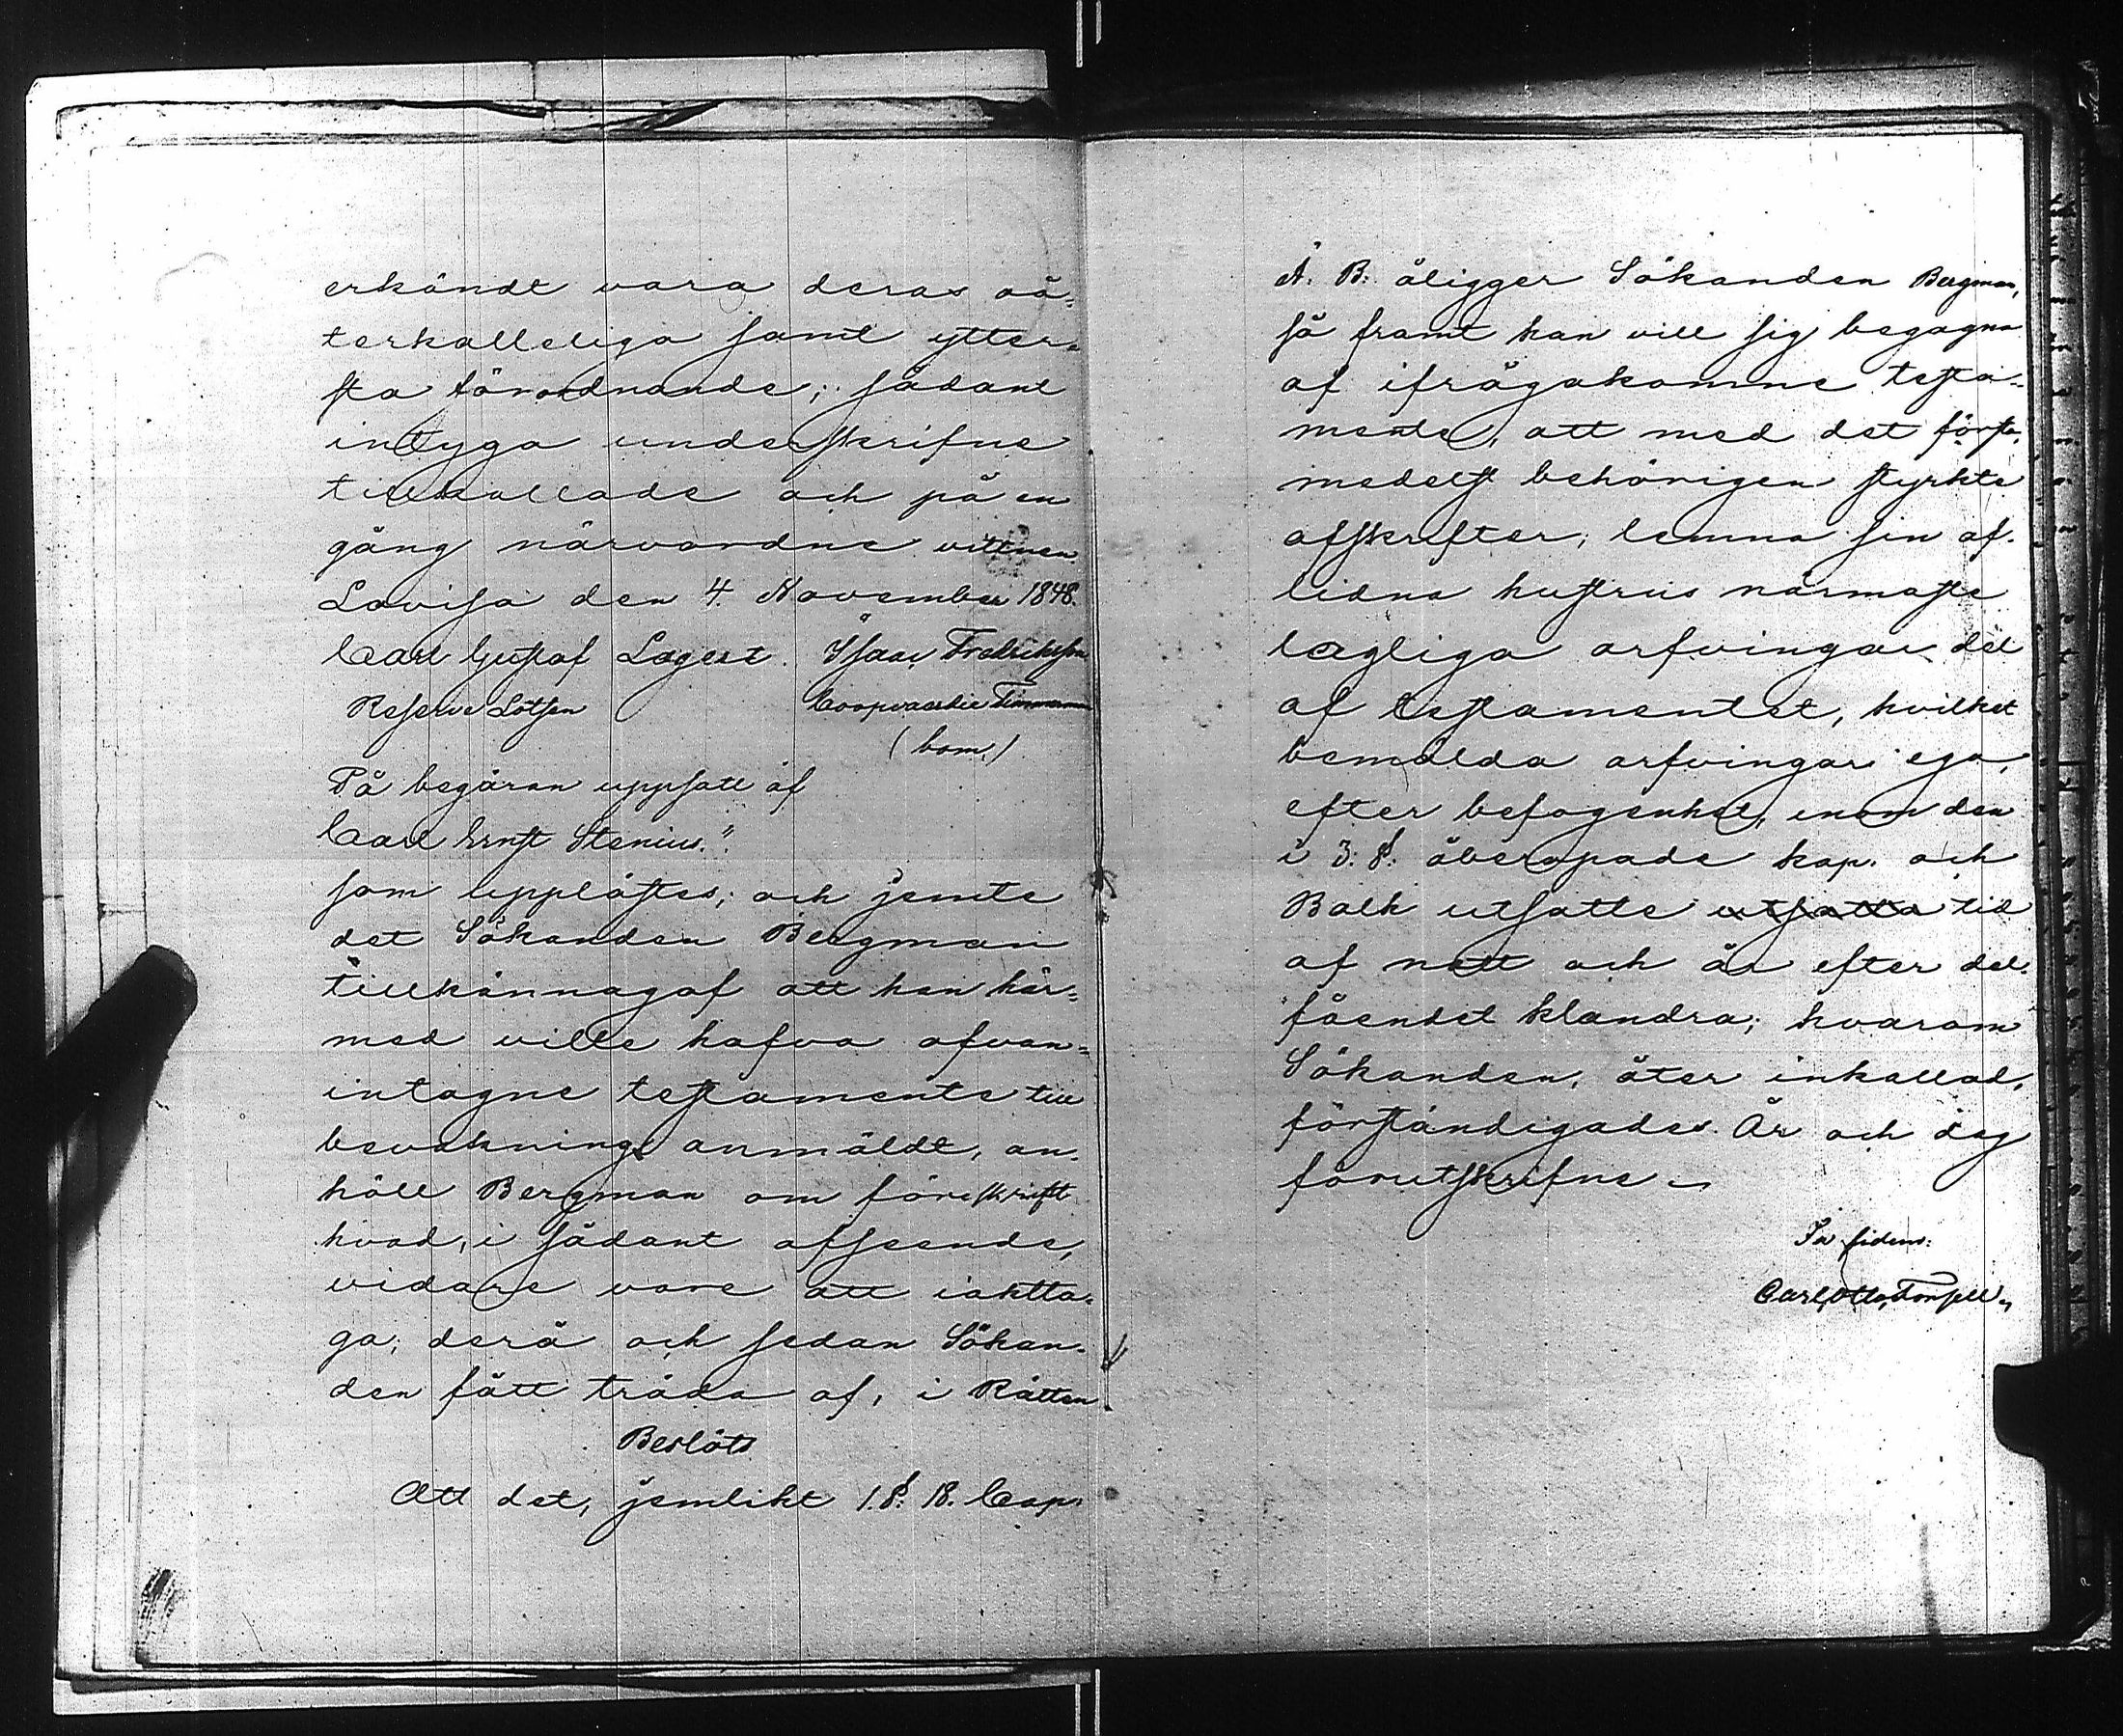 erkändt vara deras oå-
terkalleliga samt ytter-
sta förordnande; sådant
intyga underskrifne
tillkallade och på en
gång närvarande vittnen.
Lovisa den 4. November 1848.
Carl Gustaf Lagert. Isaac Fredriksson
Reserve Lotsen Coopvaerdie Timmerman
(bom.)
På begäran uppsatt af
Carl Ernst Stenius."
som upplästes; och jemte
det Sökanden Bergman
tillkännagaf att han här-
med ville hafva ofvan-
intagne testamente till
bevakning anmäldt, an-
höll Bergman om föreskrift
hvad, i sådant afseende,
vidare vore att iaktta-
ga; derå och sedan Sökan-
den fått träda af, i Rätten
Beslöts
Att det, jemlikt 1. §. 18. Cap.
Ä. B. åligger Sökanden Bergman,
så framt han vill sig begagna
af ifrågakomne testa-
mente, att med det första,
medelst behörigen styrkte
afskrifter, lemna sin af-
lidna hustrus närmaste
lagliga arfvingar del
af testamentet, hvilket
bemälda arfvingar ega,
efter befogenhet, inom den
i 3. §. åberopade kap. och
Balk utsatte utsatta tid
af natt och år efter del-
fåendet klandra; hvarom
Sökanden, åter inkallad,
förständigades. År och dag
förutskrifne
In fidem:
Carl Otto Forsell